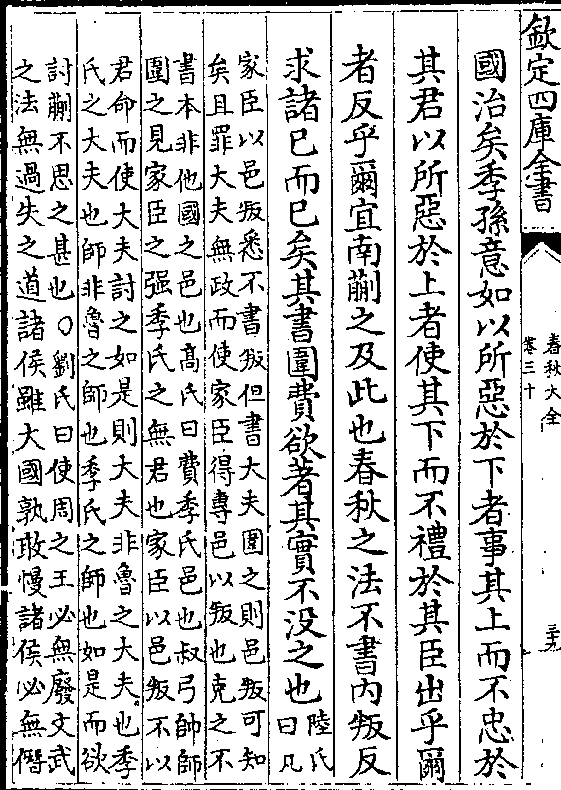 欽定四庫全書
春秋大全
卷三十
三十九
國治矣季孫意如以所惡於下者事其上而不忠於
其君以所惡於上者使其下而不禮於其臣出乎爾
者反乎爾宜南蒯之及此也春秋之法不書内叛反
求諸已而已矣其書圍費欲著其實不没之也
陸氏
曰凡
家臣以邑叛悉不書叛但書大夫圍之則邑叛可知
矣且罪大夫無政而使家臣得專邑以叛也克之不
書本非他國之邑也髙氏曰費季氏邑也叔弓帥師
圍之見家臣之强季氏之無君也家臣以邑叛不以
君命而使大夫討之如是則大夫非魯之大夫也季
氏之大夫也師非魯之師也季氏之師也如是而欲
討蒯不思之甚也○劉氏曰使周之王必無廢文武
之法無過失之道諸侯雖大國孰敢慢諸侯必無僭